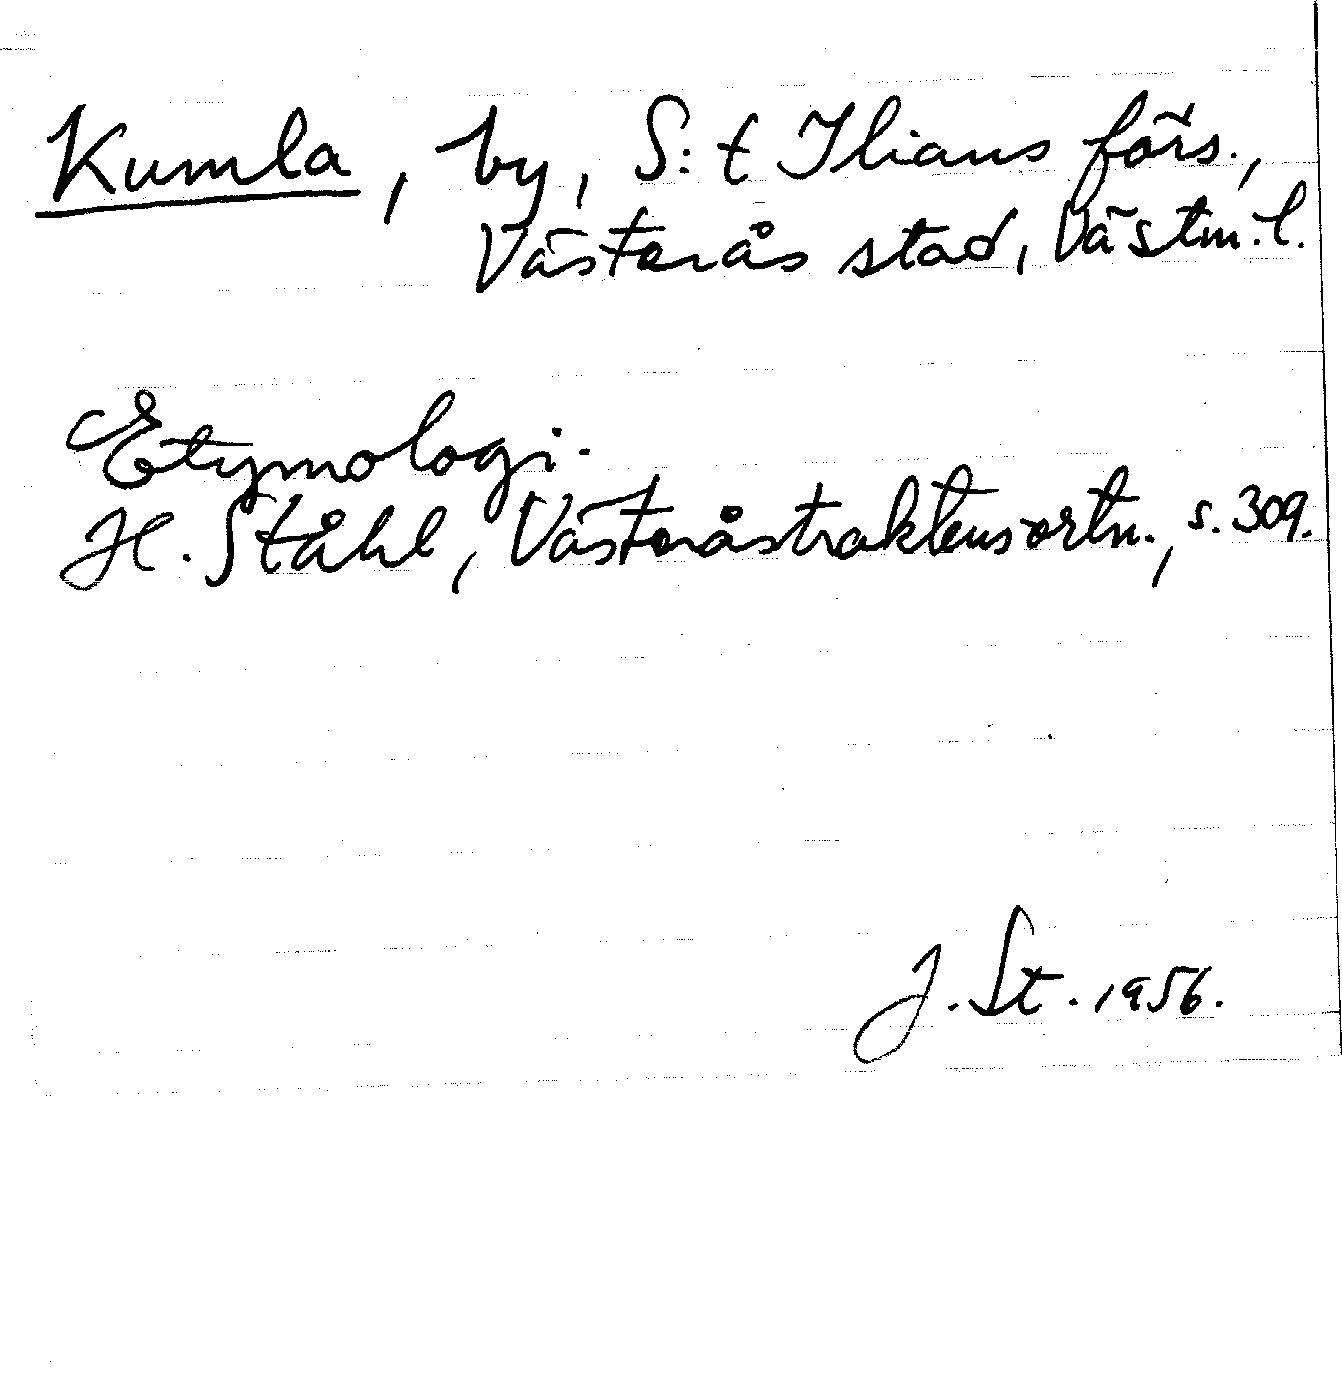 Kumla, by, S:t Ilians förs.,
Västerås stad, Västm. l.
Etymologi.
H. Ståhl, Västeråstraktens ortn., s. 309.
J. St. 1956.